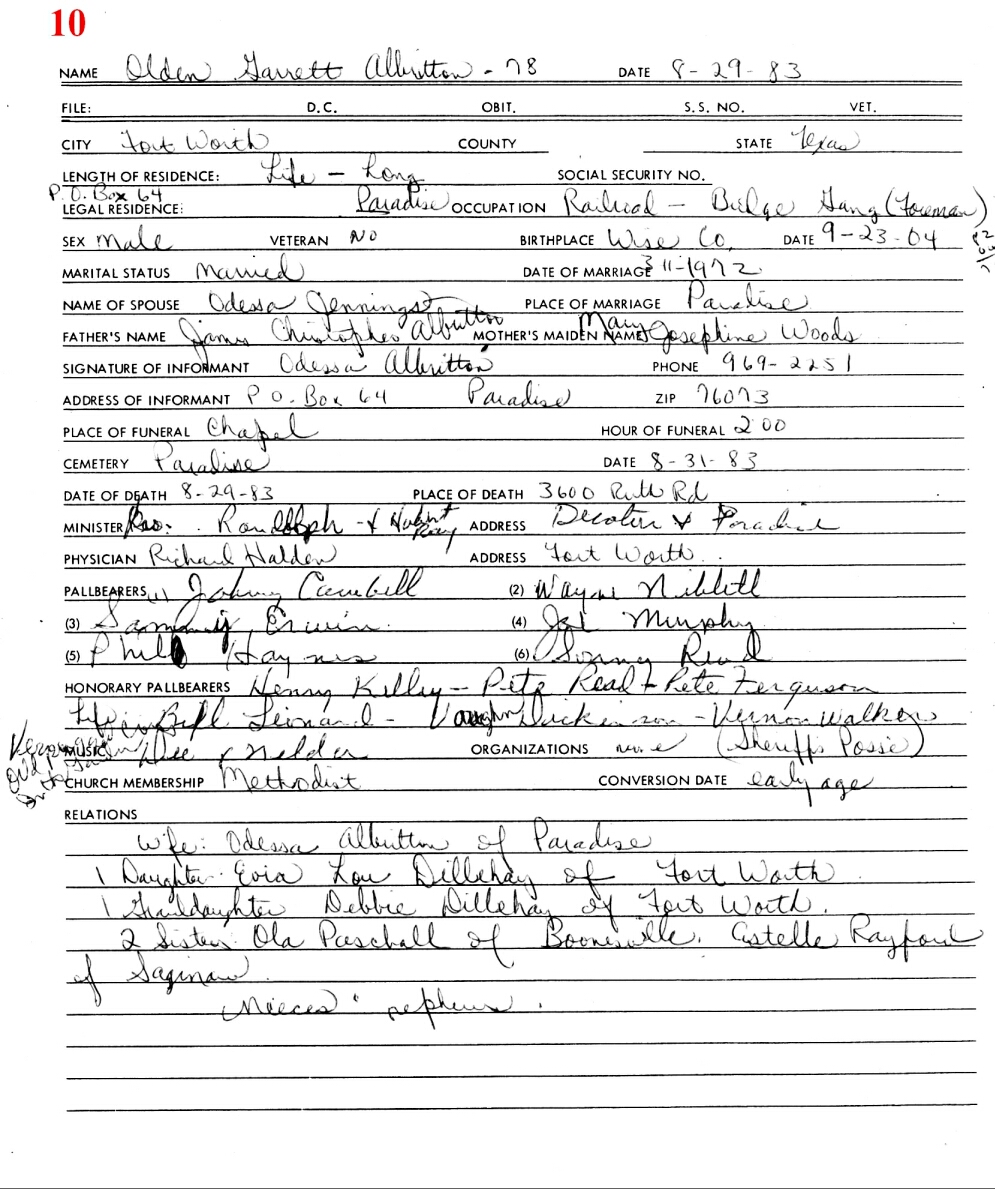 10
NAME Olden Garrett Albritton - 78 DATE 8-29-83
FILE: D.C. OBIT. S.S. NO. VET.
CITY Fort Worth COUNTY STATE Texas
LENGTH OF RESIDENCE: Life - Long SOCIAL SECURITY NO.
P.O. Box 64
LEGAL RESIDENCE: Paradise OCCUPATION Railroad - Bridge Gang (Foreman)
SEX Male VETERAN No BIRTHPLACE Wise Co. DATE 9-23-04
MARITAL STATUS Married DATE OF MARRIAGE 3 11-1972
NAME OF SPOUSE Odessa Jennings PLACE OF MARRIAGE Paradise
FATHER'S NAME James Christopher Albritton MOTHER'S MAIDEN NAME Mary Josephine Woods
SIGNATURE OF INFORMANT Odessa Albritton PHONE 969-2251
ADDRESS OF INFORMANT P O. Box 64 Paradise ZIP 76073
PLACE OF FUNERAL Chapel HOUR OF FUNERAL 2:00
CEMETERY Paradise DATE 8-31-83
DATE OF DEATH 8-29-83 PLACE OF DEATH 3600 Ruth Rd
MINISTER Randolph - & Ray ADDRESS Decatur & Paradise
PHYSICIAN Richard Halden ADDRESS Fort Worth
PALLBEARERS (1) Johnny Campbell (2) Wayne Niblett
(3) Sammy Erwin (4) Murphy
(5) Haynes (6) Sonny Read
HONORARY PALLBEARERS Henry Kelley - Pete Read + Pete Ferguson
Bill Leonard - Vaughn Dickinson - Vernon Walker
MUSIC Dee & Nelda ORGANIZATIONS none (Sheriff's Posse)
CHURCH MEMBERSHIP Methodist CONVERSION DATE early age
RELATIONS
Wife: Odessa Albritton of Paradise
1 Daughter: Evia Lou Dillehay of Fort Worth
1 Granddaughter Debbie Dillehay of Fort Worth.
2 Sisters: Ola Paschall of Boonesville. Estelle Rayford
of Saginaw.
Nieces nephews.